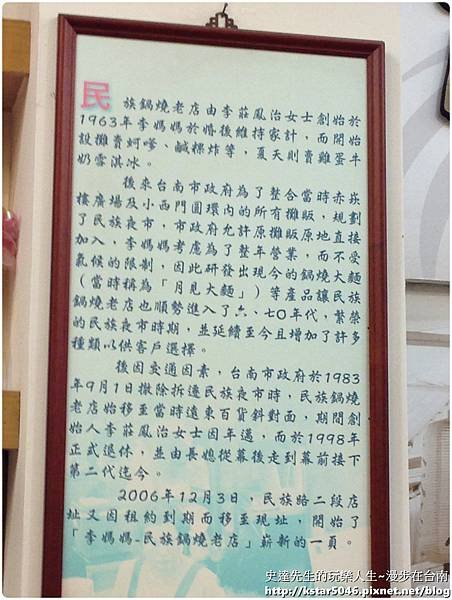 民族鍋燒老店由李莊鳳治女士創始於
1963年李媽媽於婚後維持家計,而開始
設攤賣蚵嗲、鹹粿炸等,夏天則賣雞蛋牛
奶雪淇冰。
後來台南市政府為了整合當時赤崁
樓廣場及小西門圓環內的所有攤販,規劃
了民族夜市,市政府允許原攤販原地直接
加入,李媽媽考慮為了整年營業,而不受
氣候的限制,因此研發出現今的鍋燒大麵
(當時稱為「月見大麵」)等產品讓民族
鍋燒老店也順勢進入了六、七〇年代,繁榮
的民族夜市時期,並延續至今且增加了許多
種類以供客戶選擇。
後因交通因素,台南市政府於1983
年9月1日撤除拆遷民族夜市時,民族鍋燒
老店始移至當時遠東百貨斜對面,期間創
始人李莊鳳治女士因年邁,而於1998年
正式退休,並由長媳從幕後走到幕前接下
第二代迄今。
2006年12月3日,民族路二段店
址又因租約到期而移至現址,開始了
「李媽媽-民族鍋燒老店」嶄新的一頁。
史達先生的玩樂人生~漫步在台南
http://kstar5046.pixnet.net/blog